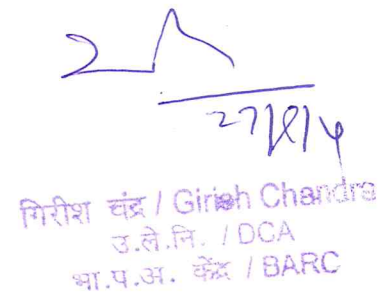 गिरीश चंद्र / Girish Chandra
उ.ले.नि. / DCA
भा.प.अ. केंद्र / BARC